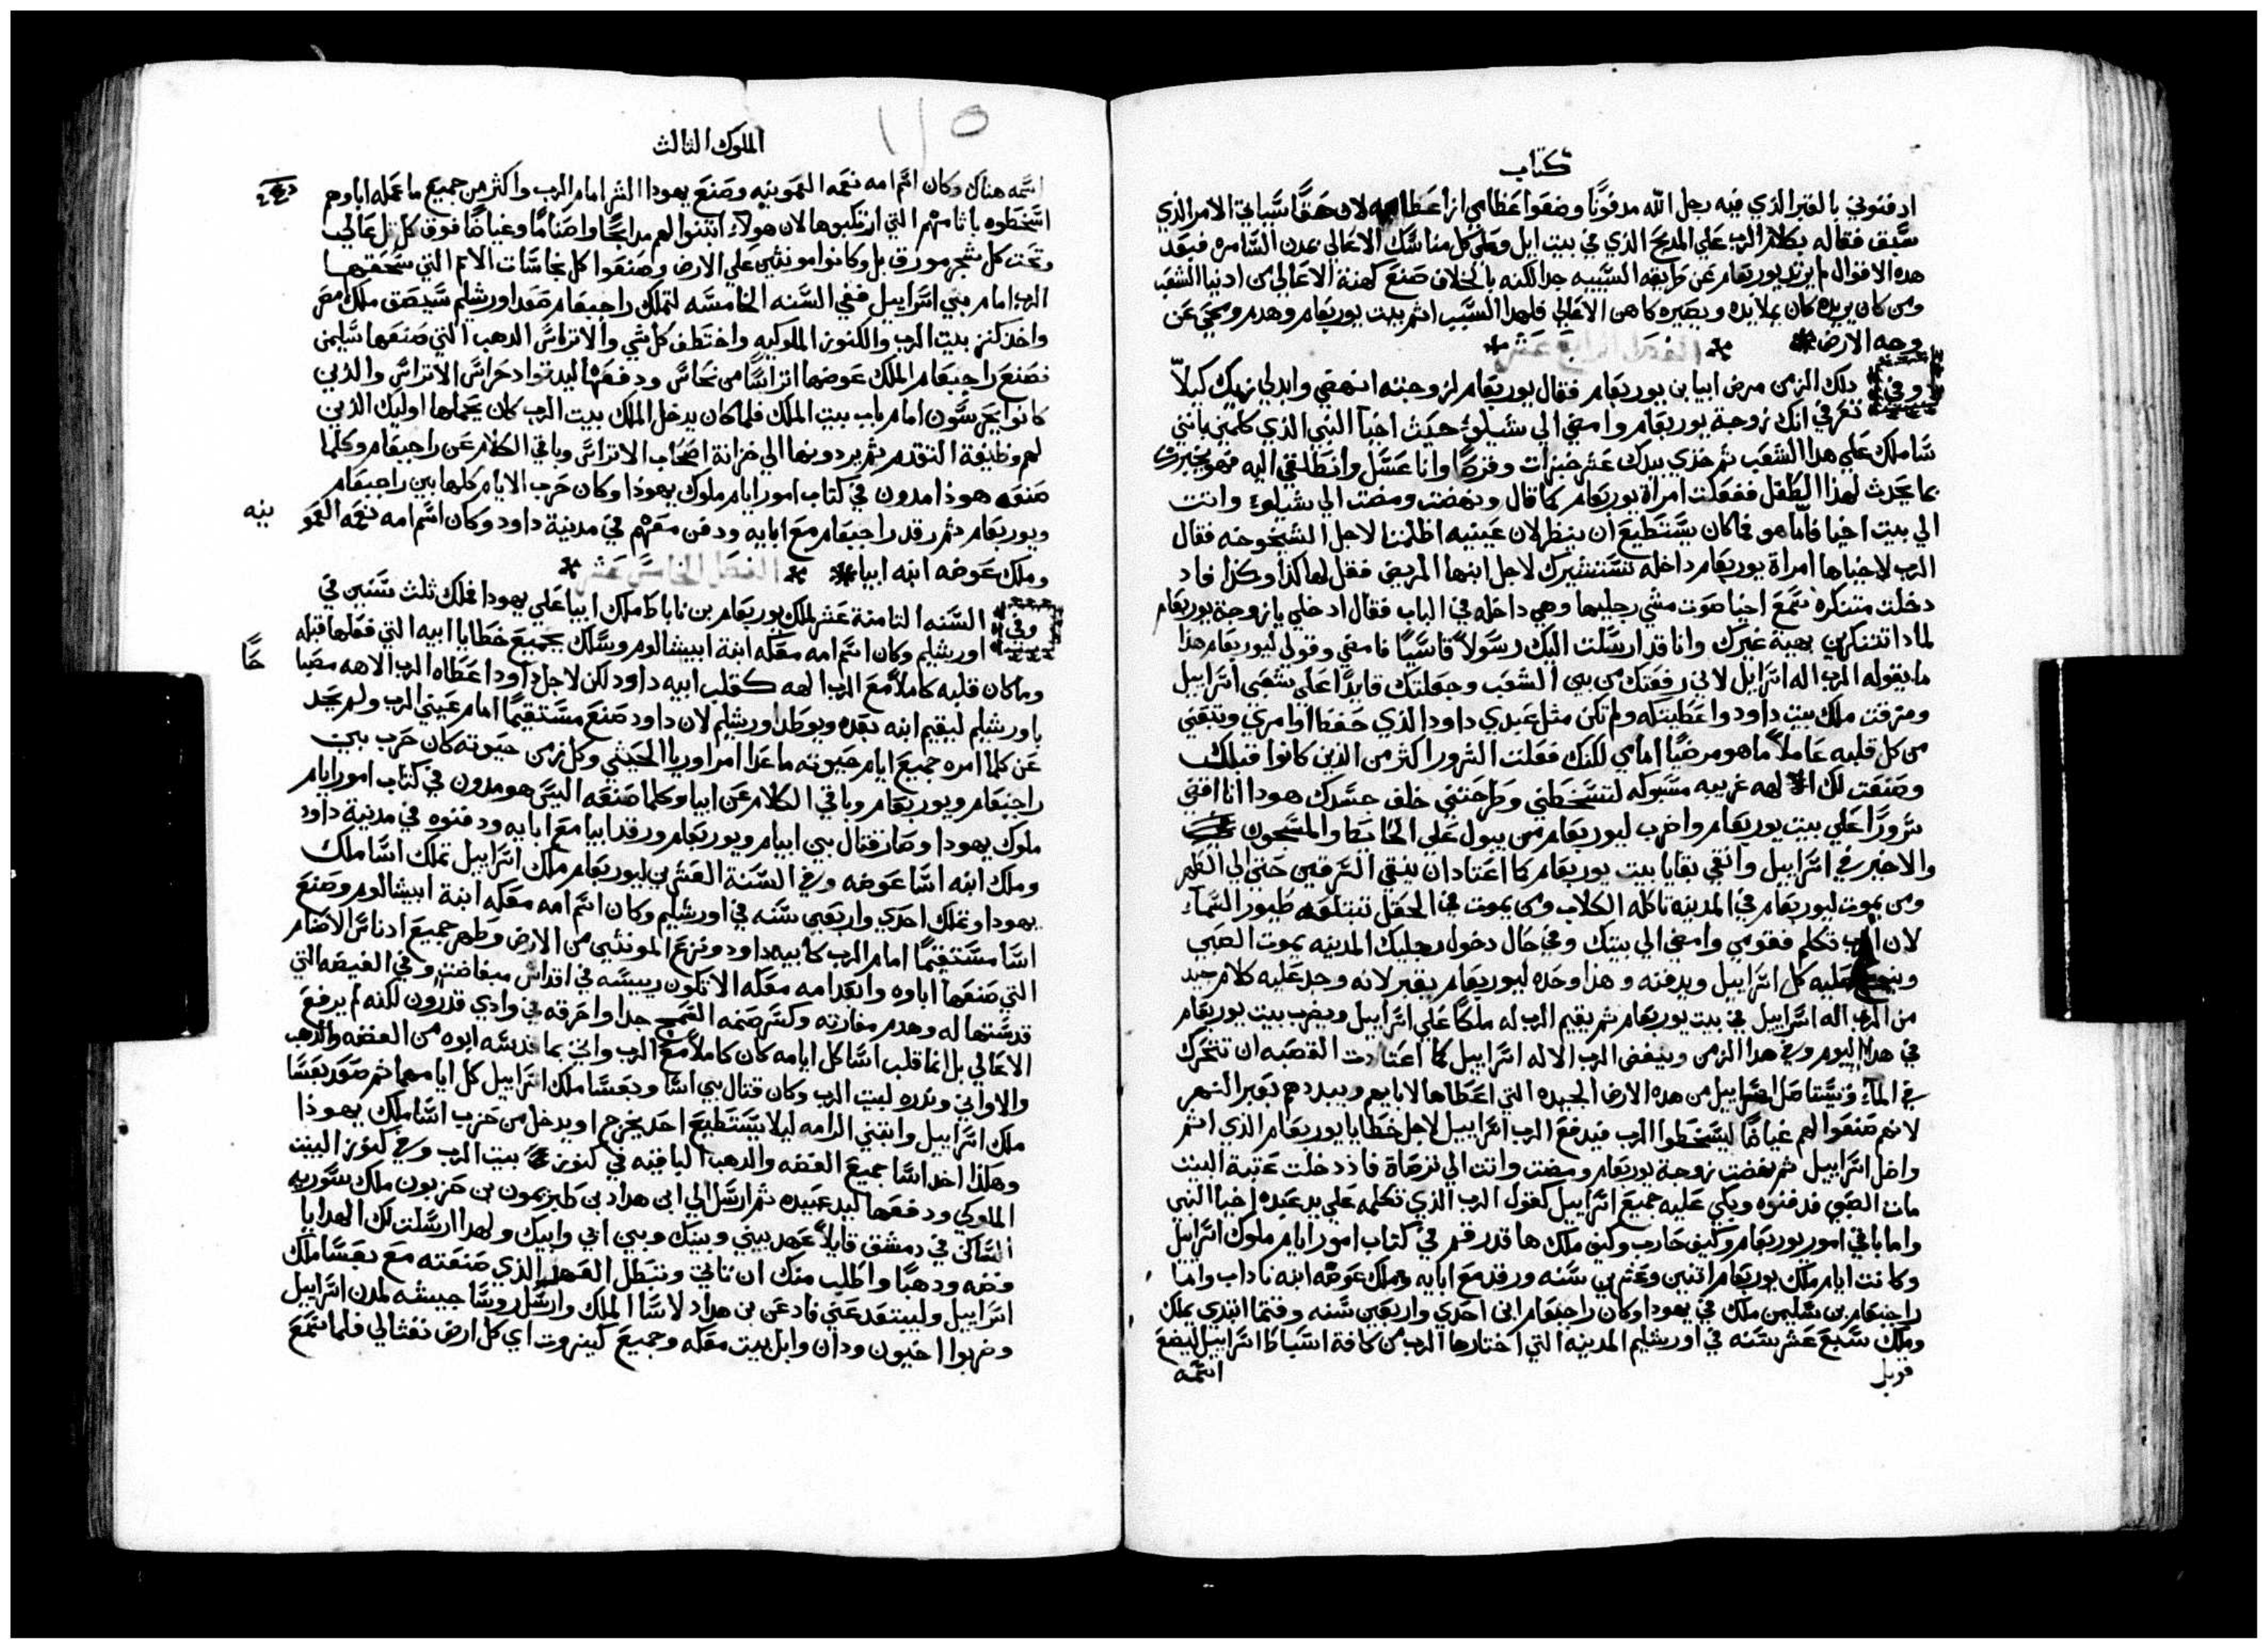 كتاب
ادفنوني بالقبر الذي فيه رجل الله مدفونًا وضعوا عظامي ازا عظامه لان حقًا سياتي الامر الذي
سبق فقاله بكلام الرب علي المدبح الذي في بيت ايل وعلي كل مناسك الاعالي بمدن السامره فبعد
هده الاقوال لم يرتد يوربعام عن طرايقه السييه جدا لكنه بالخلاف صنع كهنة الاعالي من ادنيا الشعب
ومن كان يريده كان يملا يده ويصيره كاهن الاعالي فلهدا السبب اتم بيت يوربعام وهدم ومحي عن
وجه الارض
الفصل الرابع عشر
وفي دلك الزمن مرض ابيا بن يوربعام فقال يوربعام لزوجته انهضي وابدلي زيك كيلاّ
تعرفي انك زوجة يوربعام وامضي الي شيلو حيث اخيا النبي الذي كلمني بانني
ساملك علي هدا الشعب ثم خذي بيدك عشر خبزات وقرصًا وانا عسل وانطلقي اليه فهو يخبرك
بما يحدث لهذا الطفل ففعلت امراة يوربعام كما قال ونهضت ومضت الي شيلو واتت
الي بيت اخيا فاما هو فما كان يستطيع ان ينظر لان عينيه اظلمتا لاجل الشيخوخه فقال
الرب لاخيا ها امراة يوربعام داخله تستشيرك لاجل ابنها المريض فقل لها كذا وكذا فاد
دخلت متنكره سمع اخيا صوت مشي رجليها وهي داخله في الباب فقال ادخلي يا زوجة يوربعام
لمادا تتنكرين بهية غيرك وانا قد ارسلت اليك رسولاً قاسيًا فامضي وقولي ليوربعام هذا
ما يقوله الرب اله اسراييل لاني رفعتك من بين الشعب وجعلتك قايدًا علي شعبي اسراييل
ومزقت ملك بيت داود واعطيتكه ولم تكن مثل عبدي داود الذي حفظ اوامري وتبعني
من كل قلبه عاملاً ما هو مرضيًا امامي لكنك فعلت الشرور اكثر من الذين كانوا قبلك
وصنعت لك الهه غريبه مسبوكه لتسخطني وطرحتني خلف جسدك هودا انا افتي
شرورًا علي بيت يوربعام واخرب ليوربعام من يبول علي الحايط والمسجون
والاخير في اسراييل وانقي بقايا بيت يوربعام كما اعتاد ان ينقي السرقين حتي الي الطهر
ومن يموت ليوربعام في المدينه تاكله الكلاب ومن يموت في الحقل تبتلعه طيور السماء
لان الرب تكلم فقومي وامضي الي بيتك وفي حال دخول رجليك المدينه يموت الصبي
وينوح عليه كل اسراييل ويدفنه وهذا وحده ليوربعام يقبر لانه وجد عليه كلام جيد
من الرب اله اسراييل في بيت يوربعام ثم يقيم الرب له ملكًا علي اسراييل ويضرب بيت يوربعام
في هدا اليوم وفي هدا الزمن وينفض الرب الاله اسراييل كما اعتادت القصبه ان تتحرك
في الماء ويستاصل اسراييل من هده الارض الجيده التي اعطاها لابايهم ويبددهم بعبر النهر
لانهم صنعوا لهم غياضًا ليسخطوا الرب فيدفع الرب اسراييل لاجل خطايا يوربعام الذي اثم
واضل اسراييل ثم نهضت زوجة يوربعام ومضت واتت الي ترصاة فاذ دخلت عتبة البيت
مات الصبي فدفنوه وبكي عليه جميع اسراييل كقول الرب الذي تكلمه علي يد عبده اخيا النبي
واما باقي امور يوربعام وكيف حارب وكيف ملك ها قد رقم في كتاب امور ايام ملوك اسراييل
وكانت ايام ملك يوربعام اتنين وعشرين سنه ورقد مع ابايه وملك عوضه ابنه ناداب واما
راجبعام بن سليمن ملك في يهودا وكان راجبعام ابن احدي واربعين سنه وقتما ابتدي يملك
وملك سبع عشر سنه في اورشليم المدينه التي اختارها الرب من كافة اسباط اسراييل ليضع
اسمه
قوبل
١١٥
الملوك الثالث
اسمه هناك وكان اسم امه نعمه العمونيه وصنع يهودا الشر امام الرب واكثر من جميع ما عمله اباوهم
اسخطوه باثامهم التي ارتكبوها لان هولاء ابتنوا لهم مدابحًا واصنامًا وغياضًا فوق كل تل عالي
وتحت كل شجر مورق بل وكانوا مونثين علي الارض وصنعوا كل نجاسات الامم التي سحقهما
الرب امام بني اسراييل ففي السنه الخامسه لتملك راجبعام صعد اورشليم سيصق ملك مصر
واخد كنز بيت الرب والكنوز الملوكيه واختطف كل شي والاتراس الدهب التي صنعها سليمن
فصنع راجبعام الملك عوضها اتراسًا من نحاس ودفعها ليد قواد حراس الاتراس والذين
كانوا يحرسون امام باب بيت الملك فلما كان يدخل الملك بيت الرب كان يحملها اوليك الذين
لهم وظيفة التقدم ثم يردونها الي خزانة اصحاب الاتراس وباقي الكلام عن راجبعام وكلما
صنعه هوذا مدون في كتاب امور ايام ملوك يهوذا وكان حرب الايام كلها بين راجبعام
ويوربعام ثم رقد راجبعام مع ابايه ودفن معهم في مدينة داود وكان اسم امه نعمه العمو نيه
وملك عوضه ابنه ابيا
الفصل الخامس عشر
وفي السنه التامنة عشر لملك يوربعام بن ناباط ملك ابيا علي يهودا فملك ثلث سنين في
اورشليم وكان اسم امه معكه ابنة ابيشالوم وسلك بجميع خطايا ابيه التي فعلها قبله
وما كان قلبه كاملاً مع الرب الهه كقلب ابيه داود لكن لاجل داود اعطاه الرب الاهه مصبا حًا
باورشليم ليقيم ابنه بعده ويوطد اورشليم لان داود صنع مستقيمًا امام عيني الرب ولم يحد
عن كلما امره جميع ايام حيوته ما عدا امر اوريا الحيثي وكل زمن حيوته كان حرب بين
راجبعام ويوربعام وباقي الكلام عن ابيا وكلما صنعه اليس هو مدون في كتاب امور ايام
ملوك يهودا وصار قتال بين ابيام ويوربعام ورقد ابيا مع ابايه ودفنوه في مدينة داود
وملك ابنه اسا عوضه وفي السنة العشرين ليوربعام ملك اسراييل تملك اسا ملك
يهودا وتملك احدي واربعين سنه في اورشليم وكان اسم امه معكه ابنة ابيشالوم وصنع
اسا مستقيمًا امام الرب كابيه داود ونزع المونثين من الارض وطهر جميع ادناس الاصنام
التي صنعها اباوه وابعد امه معكه الا تكون رييسه في اقداس مبغاضت وفي الغيضه التي
قدستها له وهدم مغارته وكسر صنمه السمج جدا واحرقه في وادي قدرون لكنه لم يرفع
الاعالي بل انما قلب اسا كل ايامه كان كاملاً مع الرب واتي بما قدسه ابوه من الفضه والدهب
والاواني ونذره لبيت الرب وكان قتال بين اسا وبعسا ملك اسراييل كل ايامهما ثم صعد بعسا
ملك اسراييل وابتني الرامه ليلا يستطيع احد يخرج او يدخل من حزب اسا ملك يهوذا
وهكذا اخد اسا جميع الفضه والدهب الباقيه في كنوز بيت الرب وفي كنوز البيت
الملوكي ودفعها ليد عبيده ثم ارسل الي ابن هداد بن طبريمون بن حزيون ملك سوريه
الساكن في دمشق قايلاً عهد بيني وبينك وبين ابي وابيك ولهدا ارسلت لك الهدايا
وفضه ودهبًا واطلب منك ان تاتي وتبطل العهد الذي صنعته مع بعسا ملك
اسراييل وليبتعد عني فادعن بن هداد لاسا الملك وارسل روسا جيشه لمدن اسراييل
وضربوا احيون ودان وابل بيت معكه وجميع كينروت اي كل ارض نفثالي فلما سمع